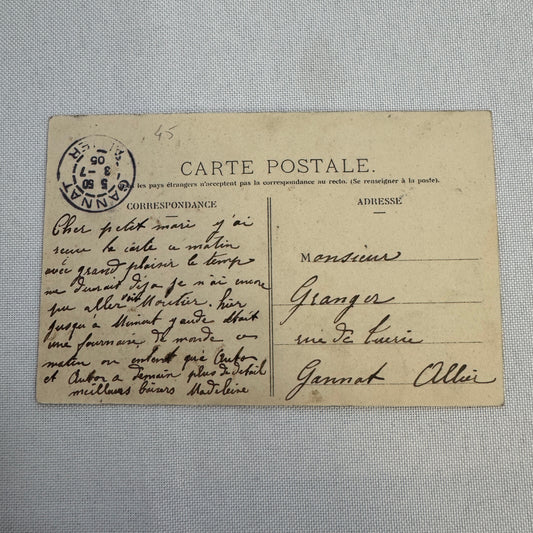 45
GANNAT
5 50
3 - 7
05
ALLIER
CARTE POSTALE.
les pays étrangers n'acceptent pas la correspondance au recto. (Se renseigner à la poste).
CORRESPONDANCE
Cher petit mari j'ai
la carte ce matin
avec grand plaisir le temps
me déja je n'ai encore
pu aller Moutier, hier
jusqu'à était
une fournaise de monde ce
matin on entent
et a demain plus de detail
meilleurs baisers Madeleine
ADRESSE
Monsieur
Granger
rue de
Gannat Allier